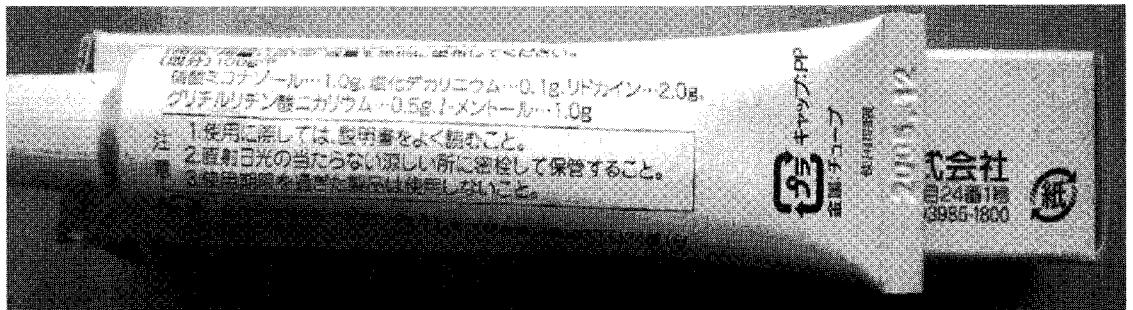 してください。
(成分)100g中
硝酸ミコナゾール…1.0g、塩化デカリニウム…0.1g、リドカイン…2.0g、
グリチルリチン酸ニカリウム…0.5g、l-メントール…1.0g
注意
1.使用に際しては、説明書をよく読むこと。
2.直射日光の当たらない涼しい所に密栓して保管すること。
3.使用期限を過ぎた製品は使用しないこと。
プラ
キャップ:PP
金属 チューブ
使用期限
2005.12
式会社
目24番1号
3985-1800
紙